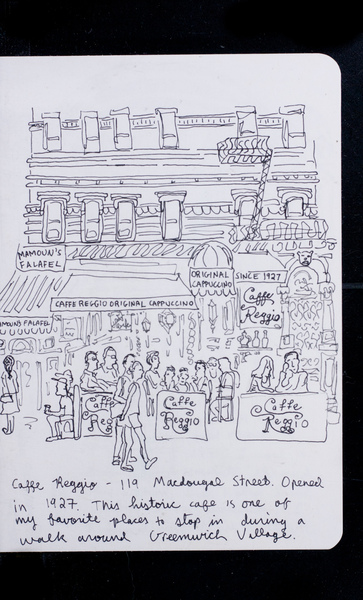 MAMOUN'S
FALAFEL
ORIGINAL
CAPPUCCINO
SINCE 1927
CAFFE REGGIO ORIGINAL CAPPUCCINO
Caffe
Reggio
MAMOUNS FALAFEL
Caffe
Reggio
Caffe
Reggio
Caffe
Reggio
Caffe Reggio - 119 Macdougal Street. Opened
in 1927. This historic cafe is one of
my favorite places to stop in during a
walk around Greenwich Village.